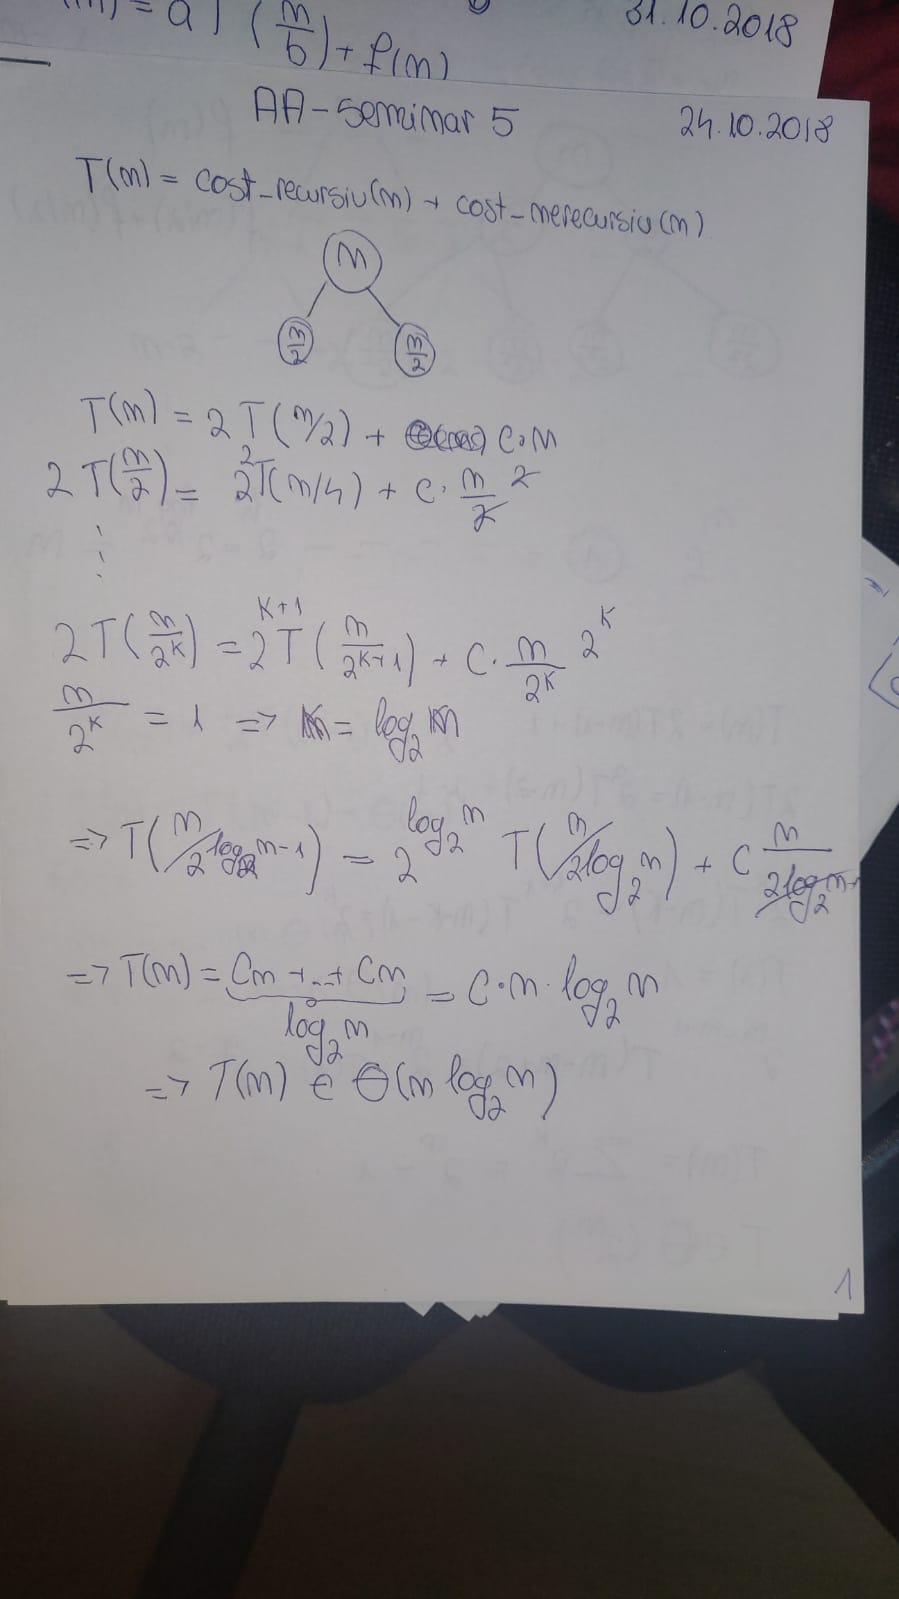 (n) = a T(n/b) + f(n)
31.10.2018
AA-Seminar 5
24.10.2018
T(n) = cost_recursiv(n) + cost_nerecursiv(n)
n
n/2 n/2
T(n) = 2T(n/2) + c·n
2T(n/2) = 2²T(n/4) + c·n/2 2
⋮
2T(n/2^K) = 2^{K+1}T(n/2^{K+1}) + c·n/2^K 2^K
n/2^K = 1 => K = log₂n
=> T(n/2^{log₂n-1}) = 2^{log₂n} T(n/2^{log₂n}) + c n/2^{log₂n-
=> T(n) = Cn + ... + Cn = C·n·log₂n
log₂n
=> T(n) ∈ Θ(n log₂n)
1